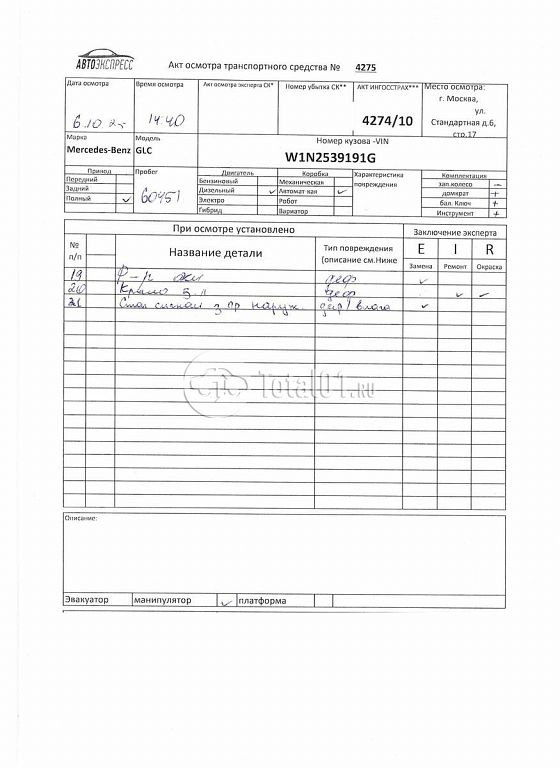 АВТОЭКСПРЕСС
Акт осмотра транспортного средства № 4275
Дата осмотра Время осмотра Акт осмотра эксперта СК* Номер убытка СК** АКТ ИНГОССТРАХ*** Место осмотра:
г. Москва,
6.10.25 14:40 4274/10 ул.
Стандартная д.6,
стр.17
Марка Модель Номер кузова -VIN
Mercedes-Benz GLC W1N2539191G
Привод Пробег Двигатель Коробка Характеристика повреждения Комплектация
Передний Бензиновый Механическая зап.колесо –
Задний 60451 Дизельный ✓ Автомат кая ✓ домкрат +
Полный ✓ Электро Робот бал. Ключ +
Гибрид Вариатор Инструмент +
При осмотре установлено Заключение эксперта
№ п/п Название детали Тип повреждения (описание см.Ниже E I R
Замена Ремонт Окраска
19 деф ✓
20 Крыло з.л деф ✓ ✓
21 Стоп сигнал з пр наруж. деф/влага ✓
Total01.RU
Описание:
Эвакуатор манипулятор ✓ платформа